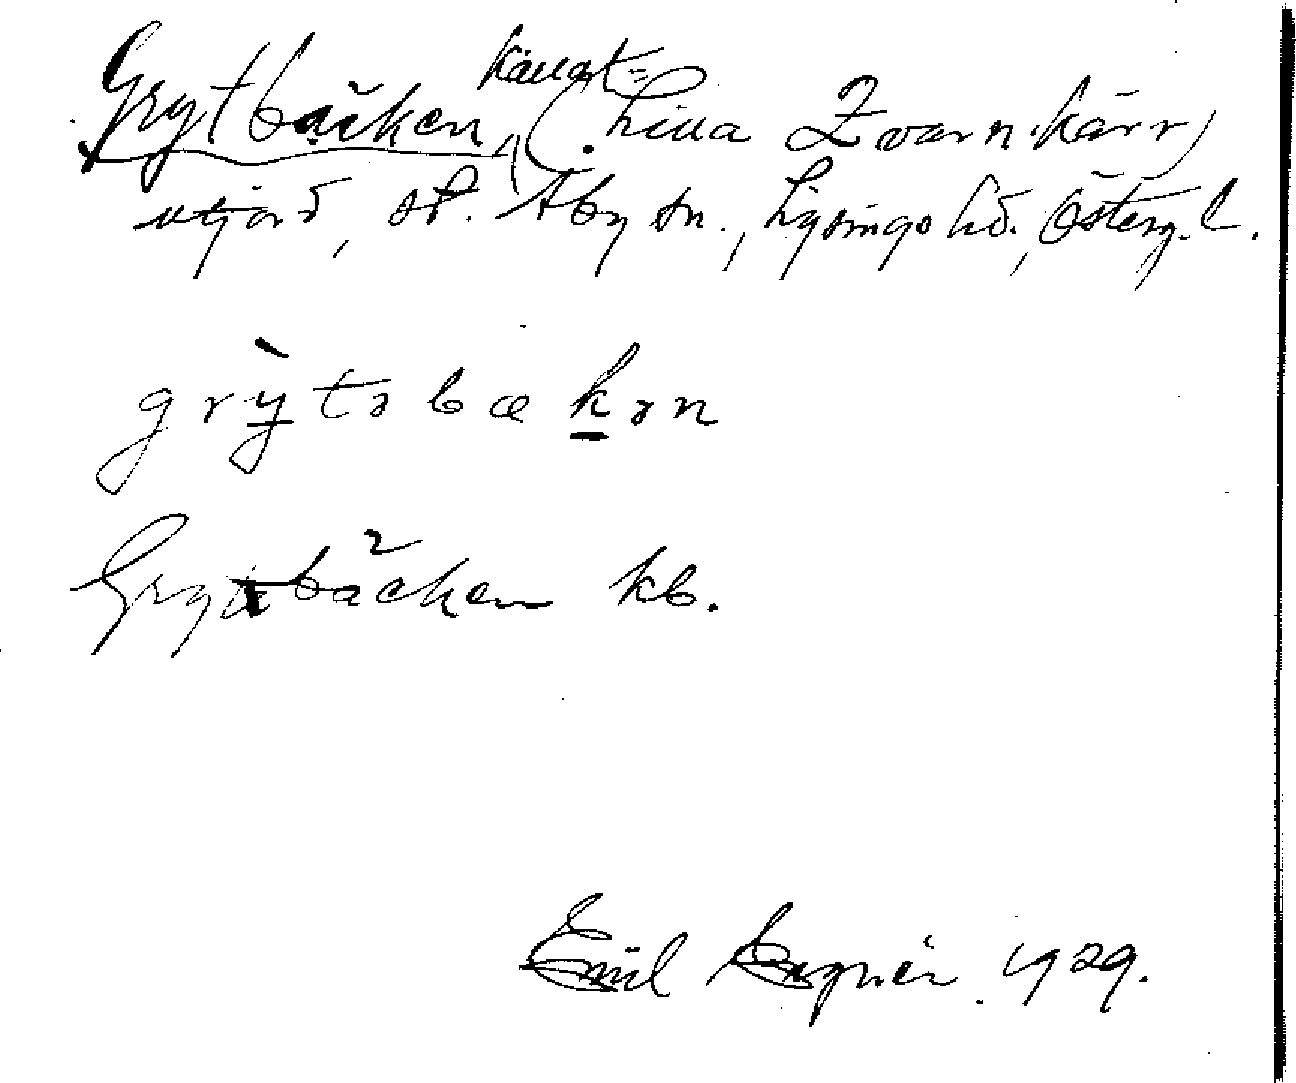 Grytbäcken, (kallat= Lilla Kvarnkärr)
utjord, st. Åby sn., Lysings hd., Österg. l.
grỳtəbækən
Grytbäcken kb.
Emil 1929.